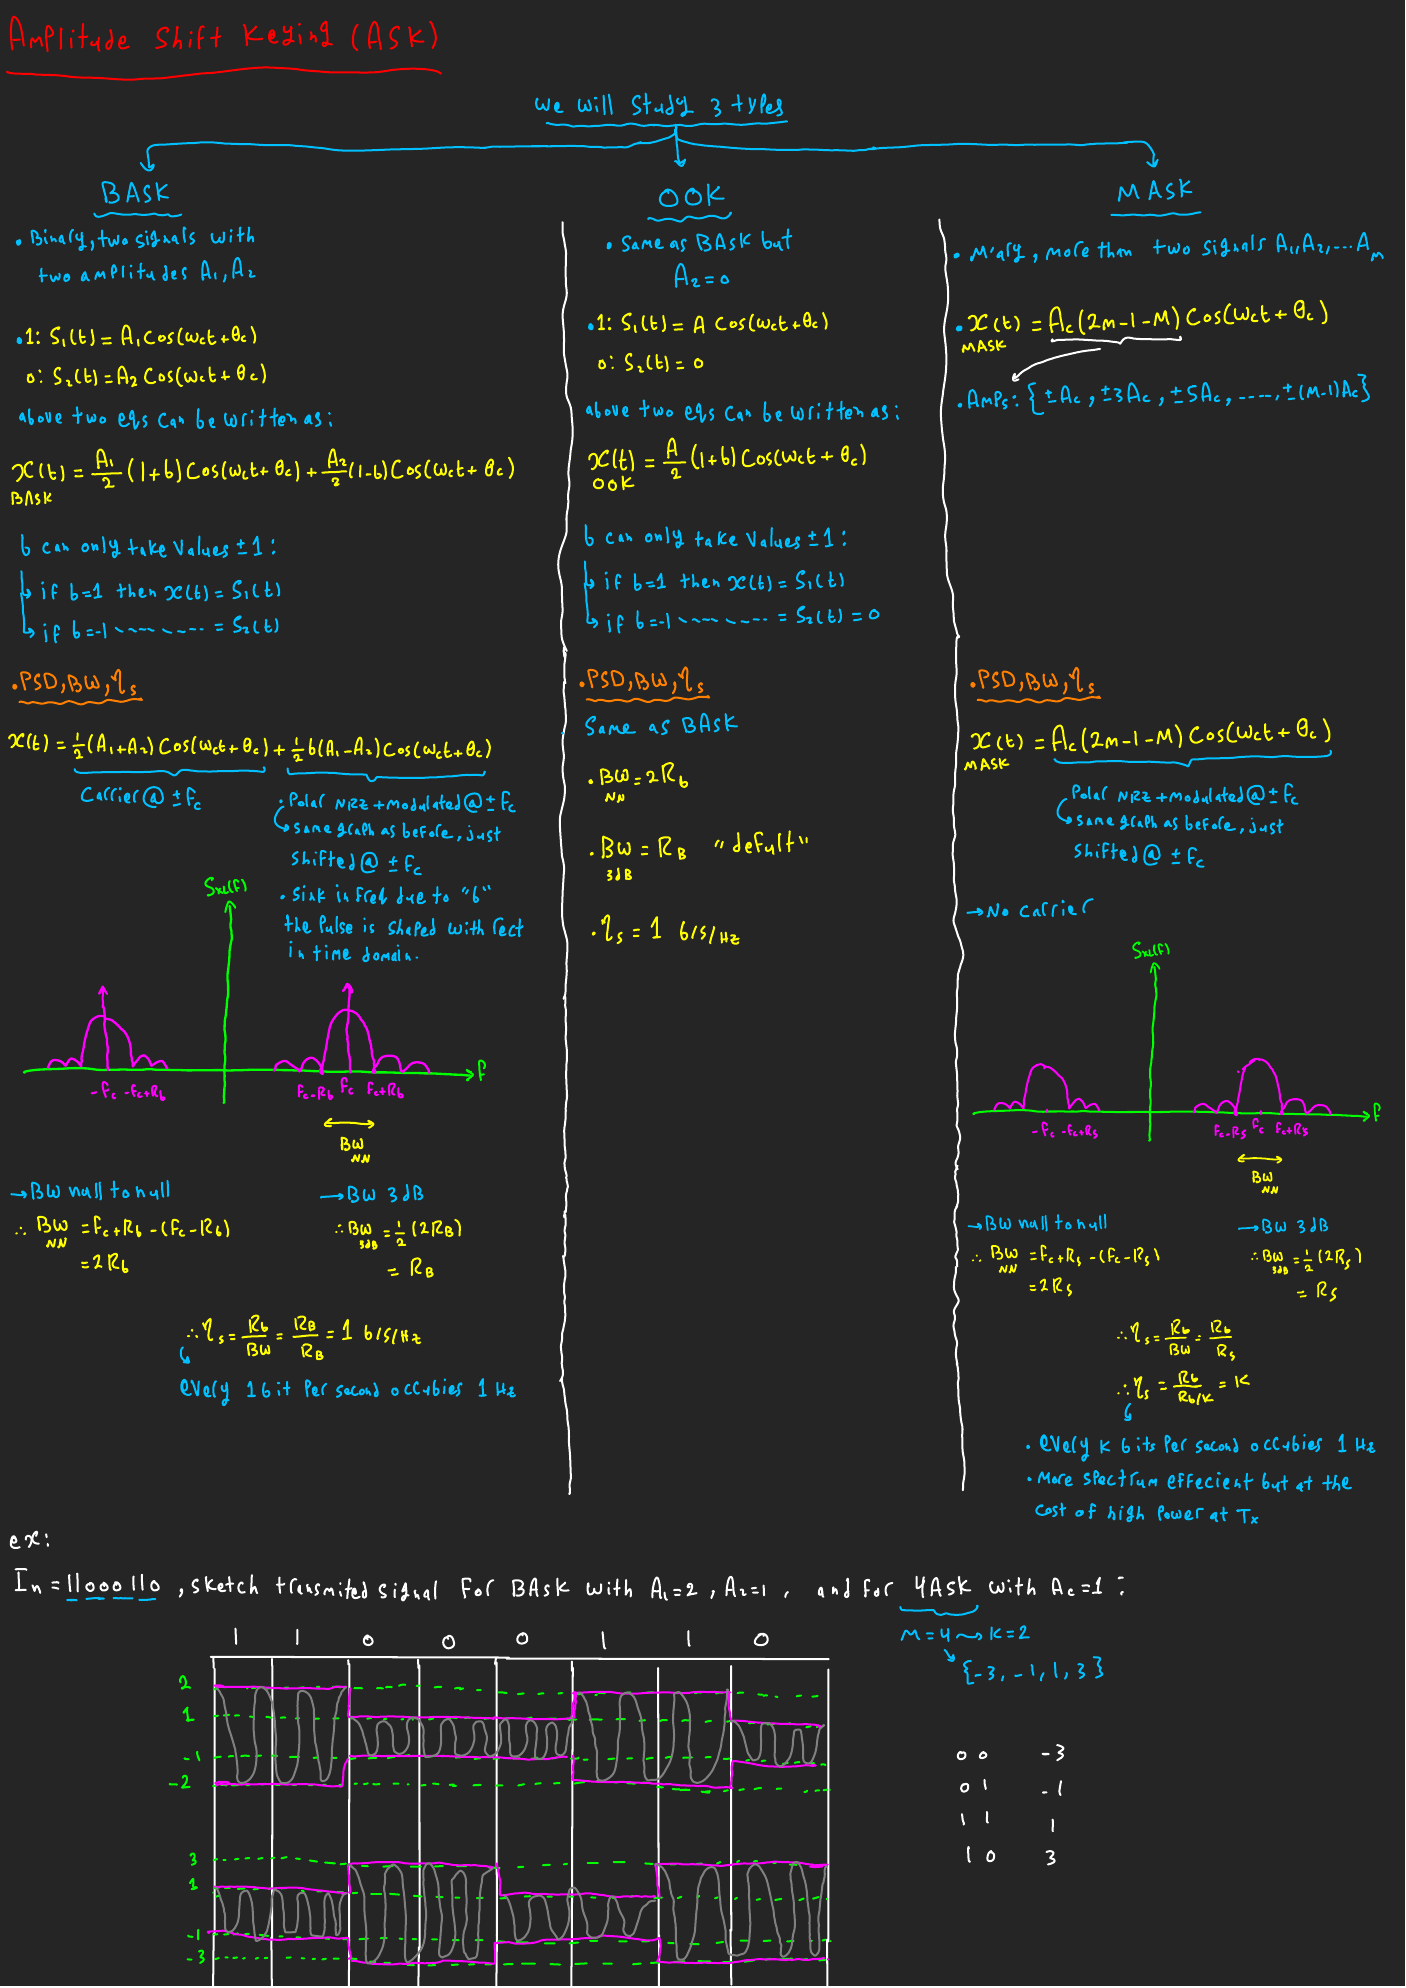 Amplitude Shift Keying (ASK)
we will study 3 types
BASK
• Binary, two signals with
two amplitudes A₁, A₂
• 1: S₁(t) = A₁ Cos(ωct+θc)
0: S₂(t) = A₂ Cos(ωct+θc)
above two eqs can be written as:
x(t) = A₁/2 (1+b) Cos(ωct+θc) + A₂/2 (1-b) Cos(ωct+θc)
BASK
b can only take values ±1:
↳ if b=1 then x(t) = S₁(t)
↳ if b=-1 ---- ---- = S₂(t)
• PSD, BW, ηs
x(t) = 1/2 (A₁+A₂) Cos(ωct+θc) + 1/2 b(A₁-A₂) Cos(ωct+θc)
Carrier @ ±Fc
• Polar NRZ + modulated @ ±Fc
↳ same graph as before, just
shifted @ ±Fc
• sink in freq due to "b"
the pulse is shaped with rect
in time domain.
Sxx(F)
f
-Fc -Fc+Rb
Fc-Rb Fc Fc+Rb
BW
NN
→ BW null to null
∴ BW = Fc+Rb - (Fc-Rb)
NN
= 2Rb
→ BW 3dB
∴ BW = 1/2 (2RB)
3dB
= RB
∴ ηs = Rb/BW = RB/RB = 1 b/s/Hz
every 1 bit per second occubies 1 Hz
OOK
• Same as BASK but
A₂=0
• 1: S₁(t) = A Cos(ωct+θc)
0: S₂(t) = 0
above two eqs can be written as:
x(t) = A/2 (1+b) Cos(ωct+θc)
OOK
b can only take values ±1:
↳ if b=1 then x(t) = S₁(t)
↳ if b=-1 ---- ---- = S₂(t) = 0
• PSD, BW, ηs
Same as BASK
• BW = 2Rb
NN
• BW = RB "defult"
3dB
• ηs = 1 b/s/Hz
MASK
• M'ary, more than two signals A₁, A₂, ... Am
• x(t) = Ac(2m-1-M) Cos(ωct+θc)
MASK
• Amps: {±Ac, ±3Ac, ±5Ac, ----, ±(M-1)Ac}
• PSD, BW, ηs
x(t) = Ac(2m-1-M) Cos(ωct+θc)
MASK
Polar NRZ + modulated @ ±Fc
↳ same graph as before, just
shifted @ ±Fc
→ No carrier
Sxx(F)
f
-Fc -Fc+Rs
Fc-Rs Fc Fc+Rs
BW
NN
→ BW null to null
∴ BW = Fc+Rs - (Fc-Rs)
NN
= 2Rs
→ BW 3dB
∴ BW = 1/2 (2Rs)
3dB
= Rs
∴ ηs = Rb/BW = Rb/Rs
∴ ηs = Rb/Rb/K = K
• every K bits per second occubies 1 Hz
• More spectrum effecient but at the
cost of high power at Tx
ex:
In = 11000110, sketch transmited signal for BASK with A₁=2, A₂=1, and for 4ASK with Ac=1:
M=4 → K=2
{-3, -1, 1, 3}
1 1 0 0 0 1 1 0
2
1
-1
-2
3
1
-1
-3
0 0 -3
0 1 -1
1 1 1
1 0 3